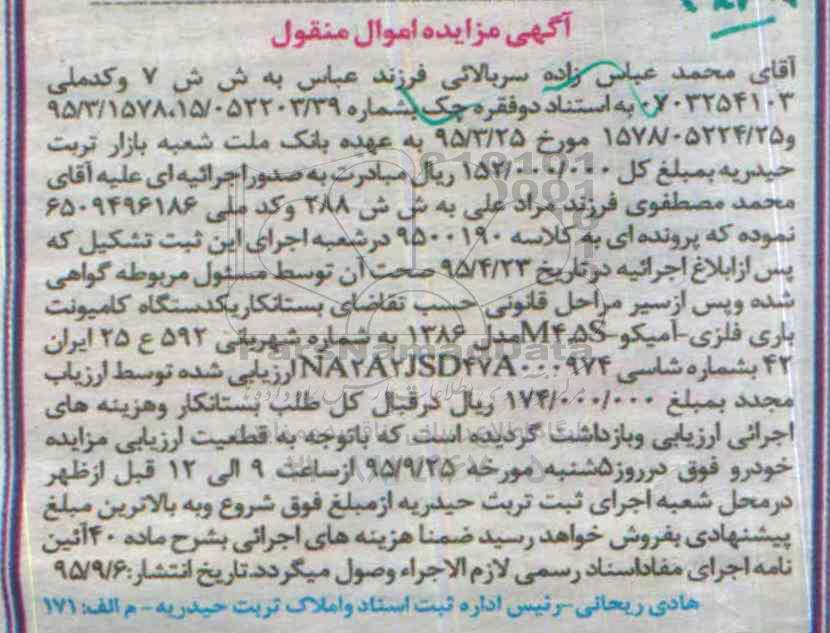 آگهی مزایده اموال منقول
آقای محمد عباس زاده سربالائی فرزند عباس به ش ش ۷ وکدملی
۰۷۰۳۲۵۴۱۰۳ به استناد دوفقره چک بشماره ۱۵/۰۵۲۲۰۳/۳۹،۹۵/۳/۱۵۷۸
و۱۵۷۸/۰۵۲۲۴/۲۵ مورخ ۹۵/۳/۲۵ به عهده بانک ملت شعبه بازار تربت
حیدریه بمبلغ کل ۱۵۲/۰۰۰/۰۰۰ ریال مبادرت به صدور اجرائیه ای علیه آقای
محمد مصطفوی فرزند مراد علی به ش ش ۲۸۸ وکد ملی ۶۵۰۹۴۹۶۱۸۶
نموده که پرونده ای به کلاسه ۹۵۰۰۱۹۰ درشعبه اجرای این ثبت تشکیل که
پس ازابلاغ اجرائیه درتاریخ ۹۵/۴/۲۳ صحت آن توسط مسئول مربوطه گواهی
شده وپس ازسیر مراحل قانونی حسب تقاضای بستانکاریکدستگاه کامیونت
باری فلزی-آمیکو-M۴.۵S مدل ۱۳۸۶ به شماره شهربانی ۵۹۲ ع ۲۵ ایران
۴۲ بشماره شاسی NA۲A۲JSD۴۷A۰۰۰۹۷۴ ارزیابی شده توسط ارزیاب
مجدد بمبلغ ۱۷۴/۰۰۰/۰۰۰ ریال درقبال کل طلب بستانکار وهزینه های
اجرائی ارزیابی وبازداشت گردیده است که باتوجه به قطعیت ارزیابی مزایده
خودرو فوق درروز۵شنبه مورخه ۹۵/۹/۲۵ ازساعت ۹ الی ۱۲ قبل ازظهر
درمحل شعبه اجرای ثبت تربت حیدریه ازمبلغ فوق شروع وبه بالاترین مبلغ
پیشنهادی بفروش خواهد رسید ضمنا هزینه های اجرائی بشرح ماده ۴۰آئین
نامه اجرای مفاداسناد رسمی لازم الاجراء وصول میگردد.تاریخ انتشار:۹۵/۹/۶
هادی ریحانی-رئیس اداره ثبت اسناد واملاک تربت حیدریه-م الف: ۱۷۱
ParsNamadData